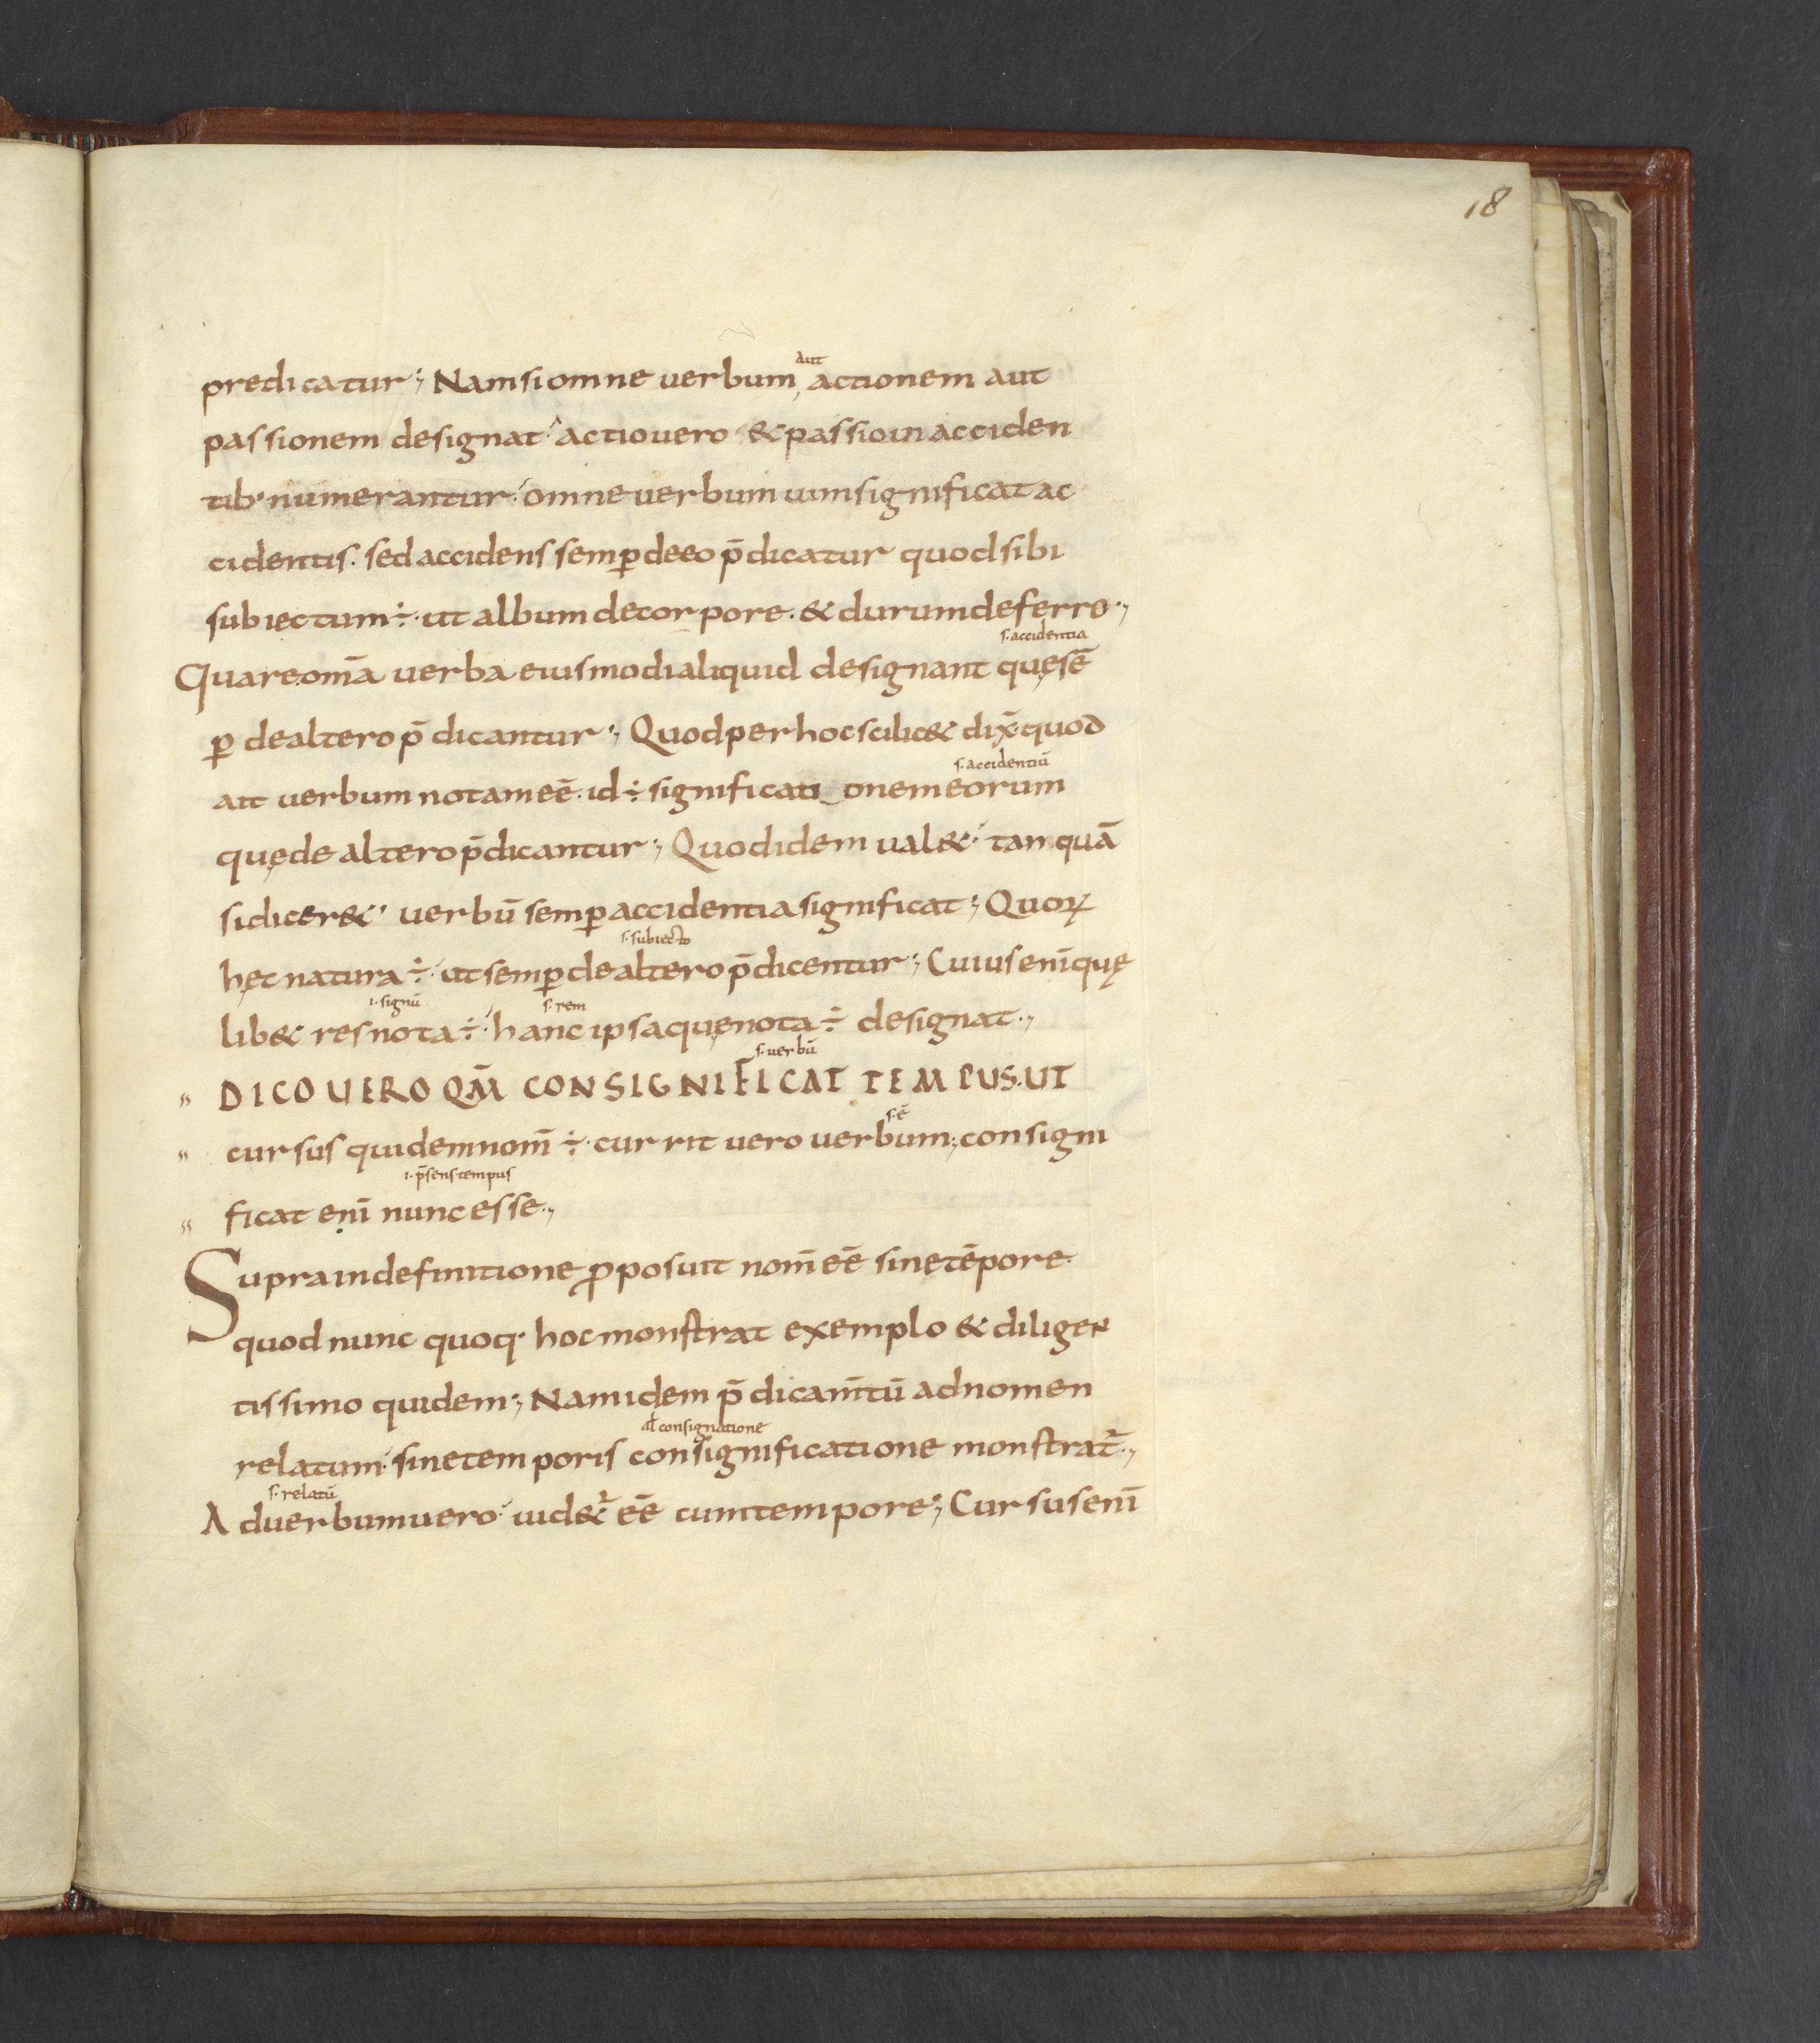 18
aut
predicatur; Nam si omne uerbum, actionem aut
passionem designat. actio uero & passio in acciden
tib; numerantur. omne uerbum uim significat ac
cidentis. sed accidens semꝑ de eo p̄dicatur quod sibi
subiectum ÷. ut album de corpore. & durum de ferro.,
s. accidentia
Quare om̄a uerba eiusmodi aliquid designant quę sē
ꝑ de altero p̄dicantur; Quod per hoc scilic& dix̄ quod
s. accidentiū
ait uerbum notam eē. id ÷ significati_onem eorum
quę de altero p̄dicantur; Quod idem ual&. tan quā
si dicer&. uerbū semꝑ accidentia significat; Quoꝝ
s. subiecto
hęc natura ÷. ut semꝑ de altero p̄dicentur; Cuius enī quę
i. signū s. rem
lib& res nota ÷. hanc ipsa quę nota ÷ designat.,
s. uerbū
" DICO UERO QM̄ CONSIGNIFICAT TEMPUS. UT
s. ē
" cursus quidem nom̄ ÷. currit uero uerbum; consigni
i. p̄sens tempus
" ficat enī nunc esse.,
Supra in definitione ꝓposuit nom̄ eē sine tēpore.
quod nunc quoq; hoc monstrat exemplo & diligen
tissimo quidem; Nam idem p̄dicam̄tū ad nomen
al̄ consignatione
relatum. sine temporis consignificatione monstrat̄.,
s. relatū
Ad uerbum uero. uidet̄ eē cum tempore; Cursus enī